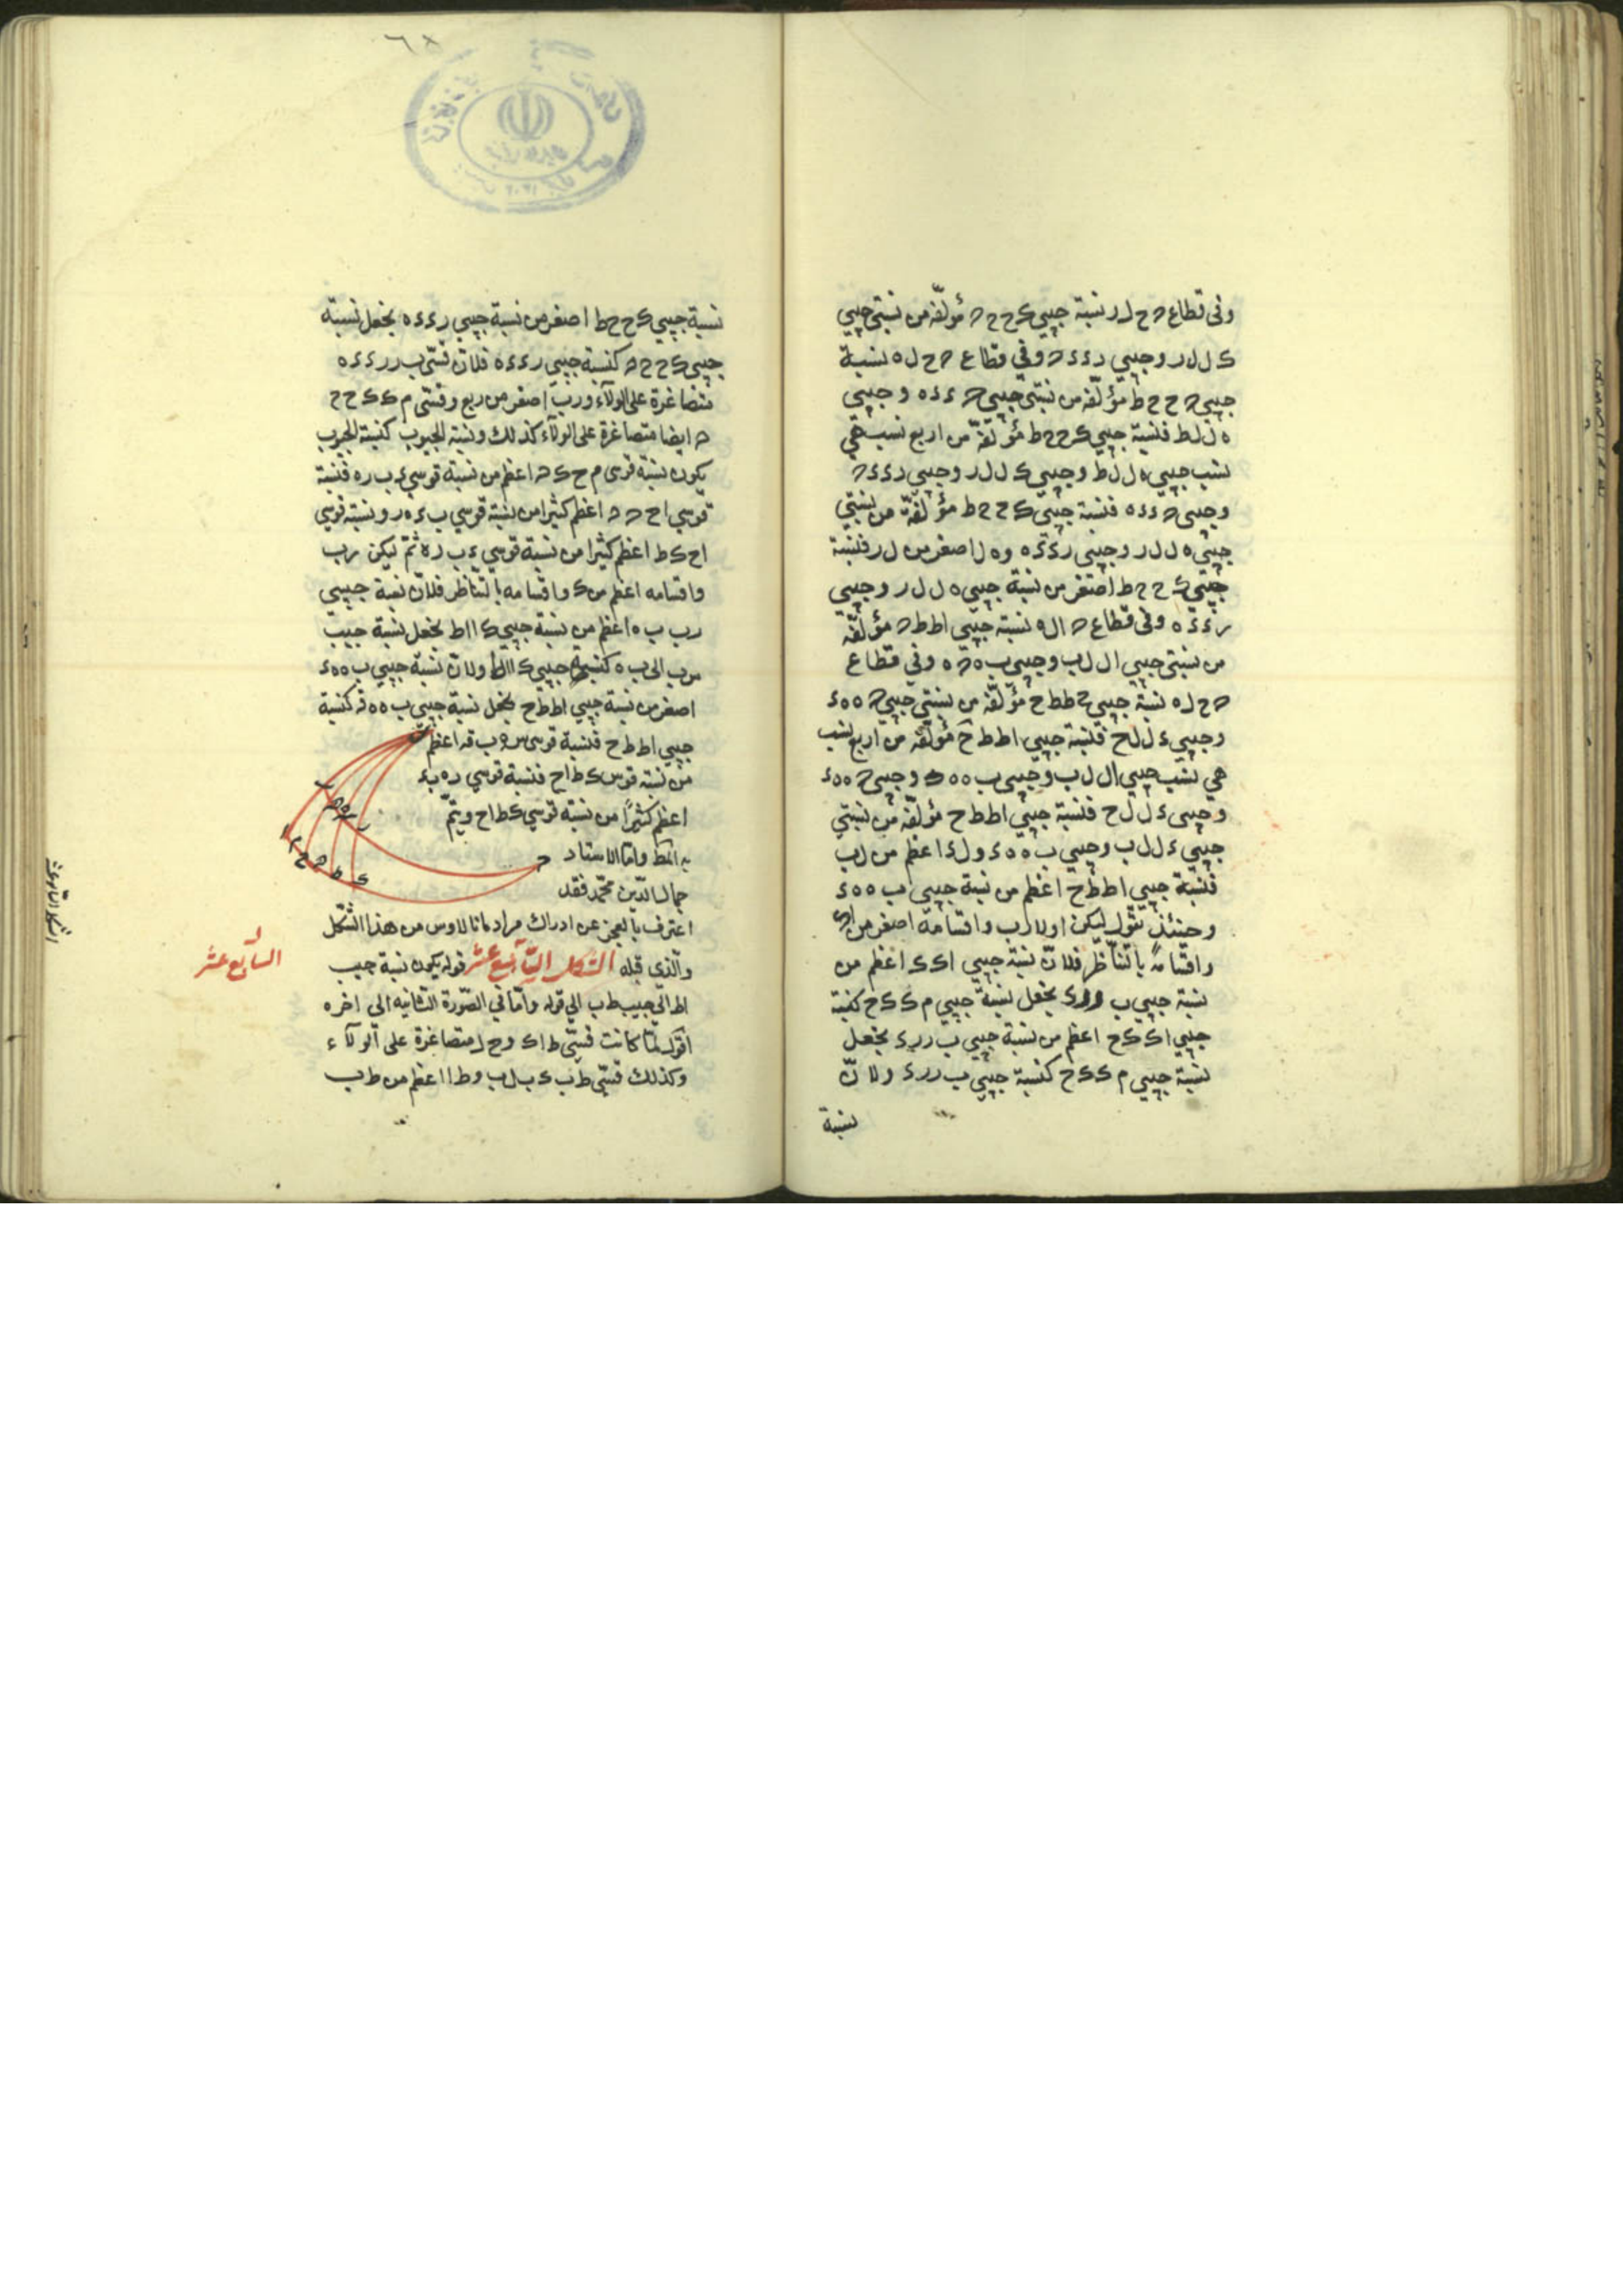 وفى قطاع ه ح ل ر نسبة جيبي ک ح ح ه مؤلفه من نسبتى جيبي
ک ل ل ر وجيبي ر ء ء ه وفي قطاع ه ح ل ه نسبة
جيبي ه ح ح ط مؤلفه من نسبتى جيبي ه ء ء ه و جيبي
ه ل ل ط فنسبة جيبي ک ح ح ط مؤلفة من اربع نسب هي
نسب جيبي ه ل ل ط وجيبي ک ل ل ر وجيبي ر ء ء ه
وجيبي ه ء ء ه فنسبة جيبي ک ح ح ط مؤلفة من نسبتي
جيبي ه ل ل ر وجيبي ر ء ء ه و ه ل اصغر من ل ر فنسبة
جيبي ک ح ح ط اصغر من نسبة جيبي ه ل ل ر وجيبي
ر ء ء ه وفى قطاع ه ا ل ه نسبة جيبي ا ط ط ه مؤلفة
من نسبتى جيبي ا ل ل ب وجيبي ب ه ه ه وفي قطاع
ه ح ل ه نسبة جيبي ه ط ط ح مؤلفه من نسبتي جيبي ه ه ه ء
وجيبي ء ل ل ح فنسبة جيبي ا ط ط ح مؤلفه من اربع نسب
هي نسب جيبي ا ل ل ب وجيبي ب ه ه ه وجيبي ه ه ه ء
وجيبى ء ل ل ح فنسبة جيبي ا ط ط ح مؤلفه من نسبتي
جيبي ء ل ل ب وجيبي ب ه ه ء و ل ء اعظم من ل ب
فنسبة جيبي ا ط ط ح اعظم من نسبة جيبي ب ه ه ء
وحينئذ نقول ليكن اولا ر ب واقسامه اصغر من ا ک
واقسامه بالتناظر فلان نسبة جيبي ا ک ک اعظم من
نسبة جيبي ب ر ر ء نجعل نسبة جيبي م ک ک ح كنسبة
جيبي ا ک ک ح اعظم من نسبة جيبي ب ر ر ء نجعل
نسبة جيبي م ک ک ح كنسبة جيبي ب ر ر ء ولان
نسبة
نسبة جيبي ک ح ح ط اصغر من نسبة جيبي ر ء ء ه نجعل نسبة
جيبى ک ح ح ه كنسبة جيبي ر ء ء ه فلان قسى ب ر ر ء ء ه
متصاغرة على الولاء و ر ب اصغر من ربع وقسى م ک ک ح ح
ه ايضا متصاغرة على الولاء كذلك ونسبة الجيوب كنسبة الجيوب
يكون نسبة قوسى م ح ک ه اعظم من نسبة قوسي ء ب ر ه فنسبة
قوسي ا ح ه ه اعظم كثيرا من نسبة قوسي ب ء ه ر ونسبة قوسي
ا ح ک ط اعظم كثيرا من نسبة قوسي ء ب ر ه ثم ليكن ر ب
واقسامه اعظم من ک واقسامه بالتناظر فلان نسبة جيبي
ر ب ب ه اعظم من نسبة جيبي ک ا ا ط نجعل نسبة جيب
س ب الى ب ه كنسبة جيبي ک ا ا ط ولان نسبة جيبي ب ه ه ء
اصغر من نسبة جيبي ا ط ط ح نجعل نسبة جيبي ب ه ه ق كنسبة
جيبي ا ط ط ح فنسبة قوسى س ه ب ق اعظم
من نسبة قوسى ک ط ا ح فنسبة قوسي ر ه ب ء
اعظم كثيرًا من نسبة قوسي ک ط ا ح ويتم
به المط واما الاستاد
جمال الدين محمد فقد
اعترف بالعجز عن ادراك مراد مانالاوس من هذا الشكل
والذي قبله الشكل السابع عشر قوله يكون نسبة جيب
ا ط الى جيب ط ب الى قوله واما في الصورة الثانية الى اخره
اقول لما كانت قسى ط ا ک و ح ر متصاغرة على الولاء
وكذلك قسى ط ب ء ب ل ب و ط ا اعظم من ط ب
السابع عشر